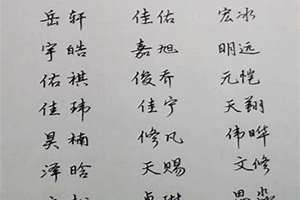 岳轩 佳佑 宏冰
宇皓 嘉旭 明远
佑祺 俊乔 元恺
佳玮 佳宁 天翔
昊楠 修凡 伟晔
泽晗 天赐 文修